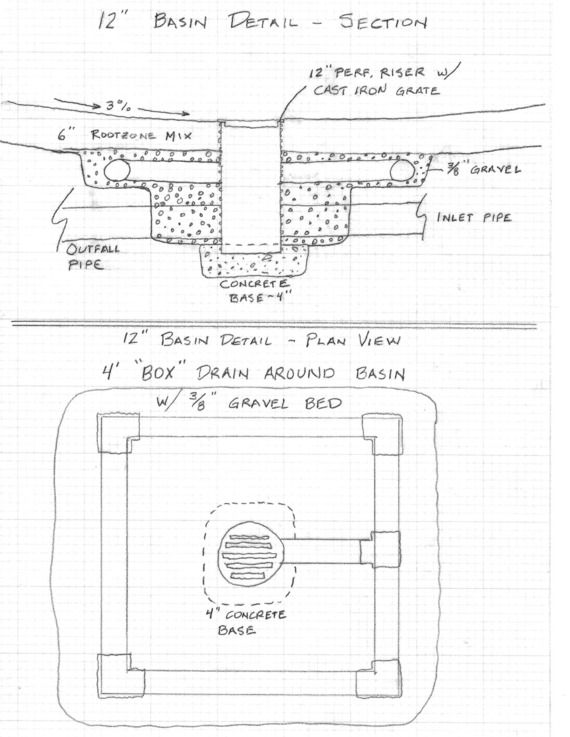 12" BASIN DETAIL - SECTION
12" PERF. RISER W/
CAST IRON GRATE
3%
6" ROOTZONE MIX
3/8" GRAVEL
INLET PIPE
OUTFALL
PIPE
CONCRETE
BASE ~4"
12" BASIN DETAIL - PLAN VIEW
4' "BOX" DRAIN AROUND BASIN
W/ 3/8" GRAVEL BED
4" CONCRETE
BASE